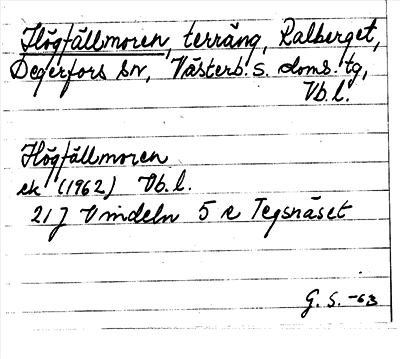 Högfällmoren, terräng, Ralberget,
Degerfors sn, Västerb. s. doms. tg,
Vb. l.
Högfällmoren
ek (1962) Vb. l.
21 J Vindeln 5 e Tegsnäset
G. S. -63